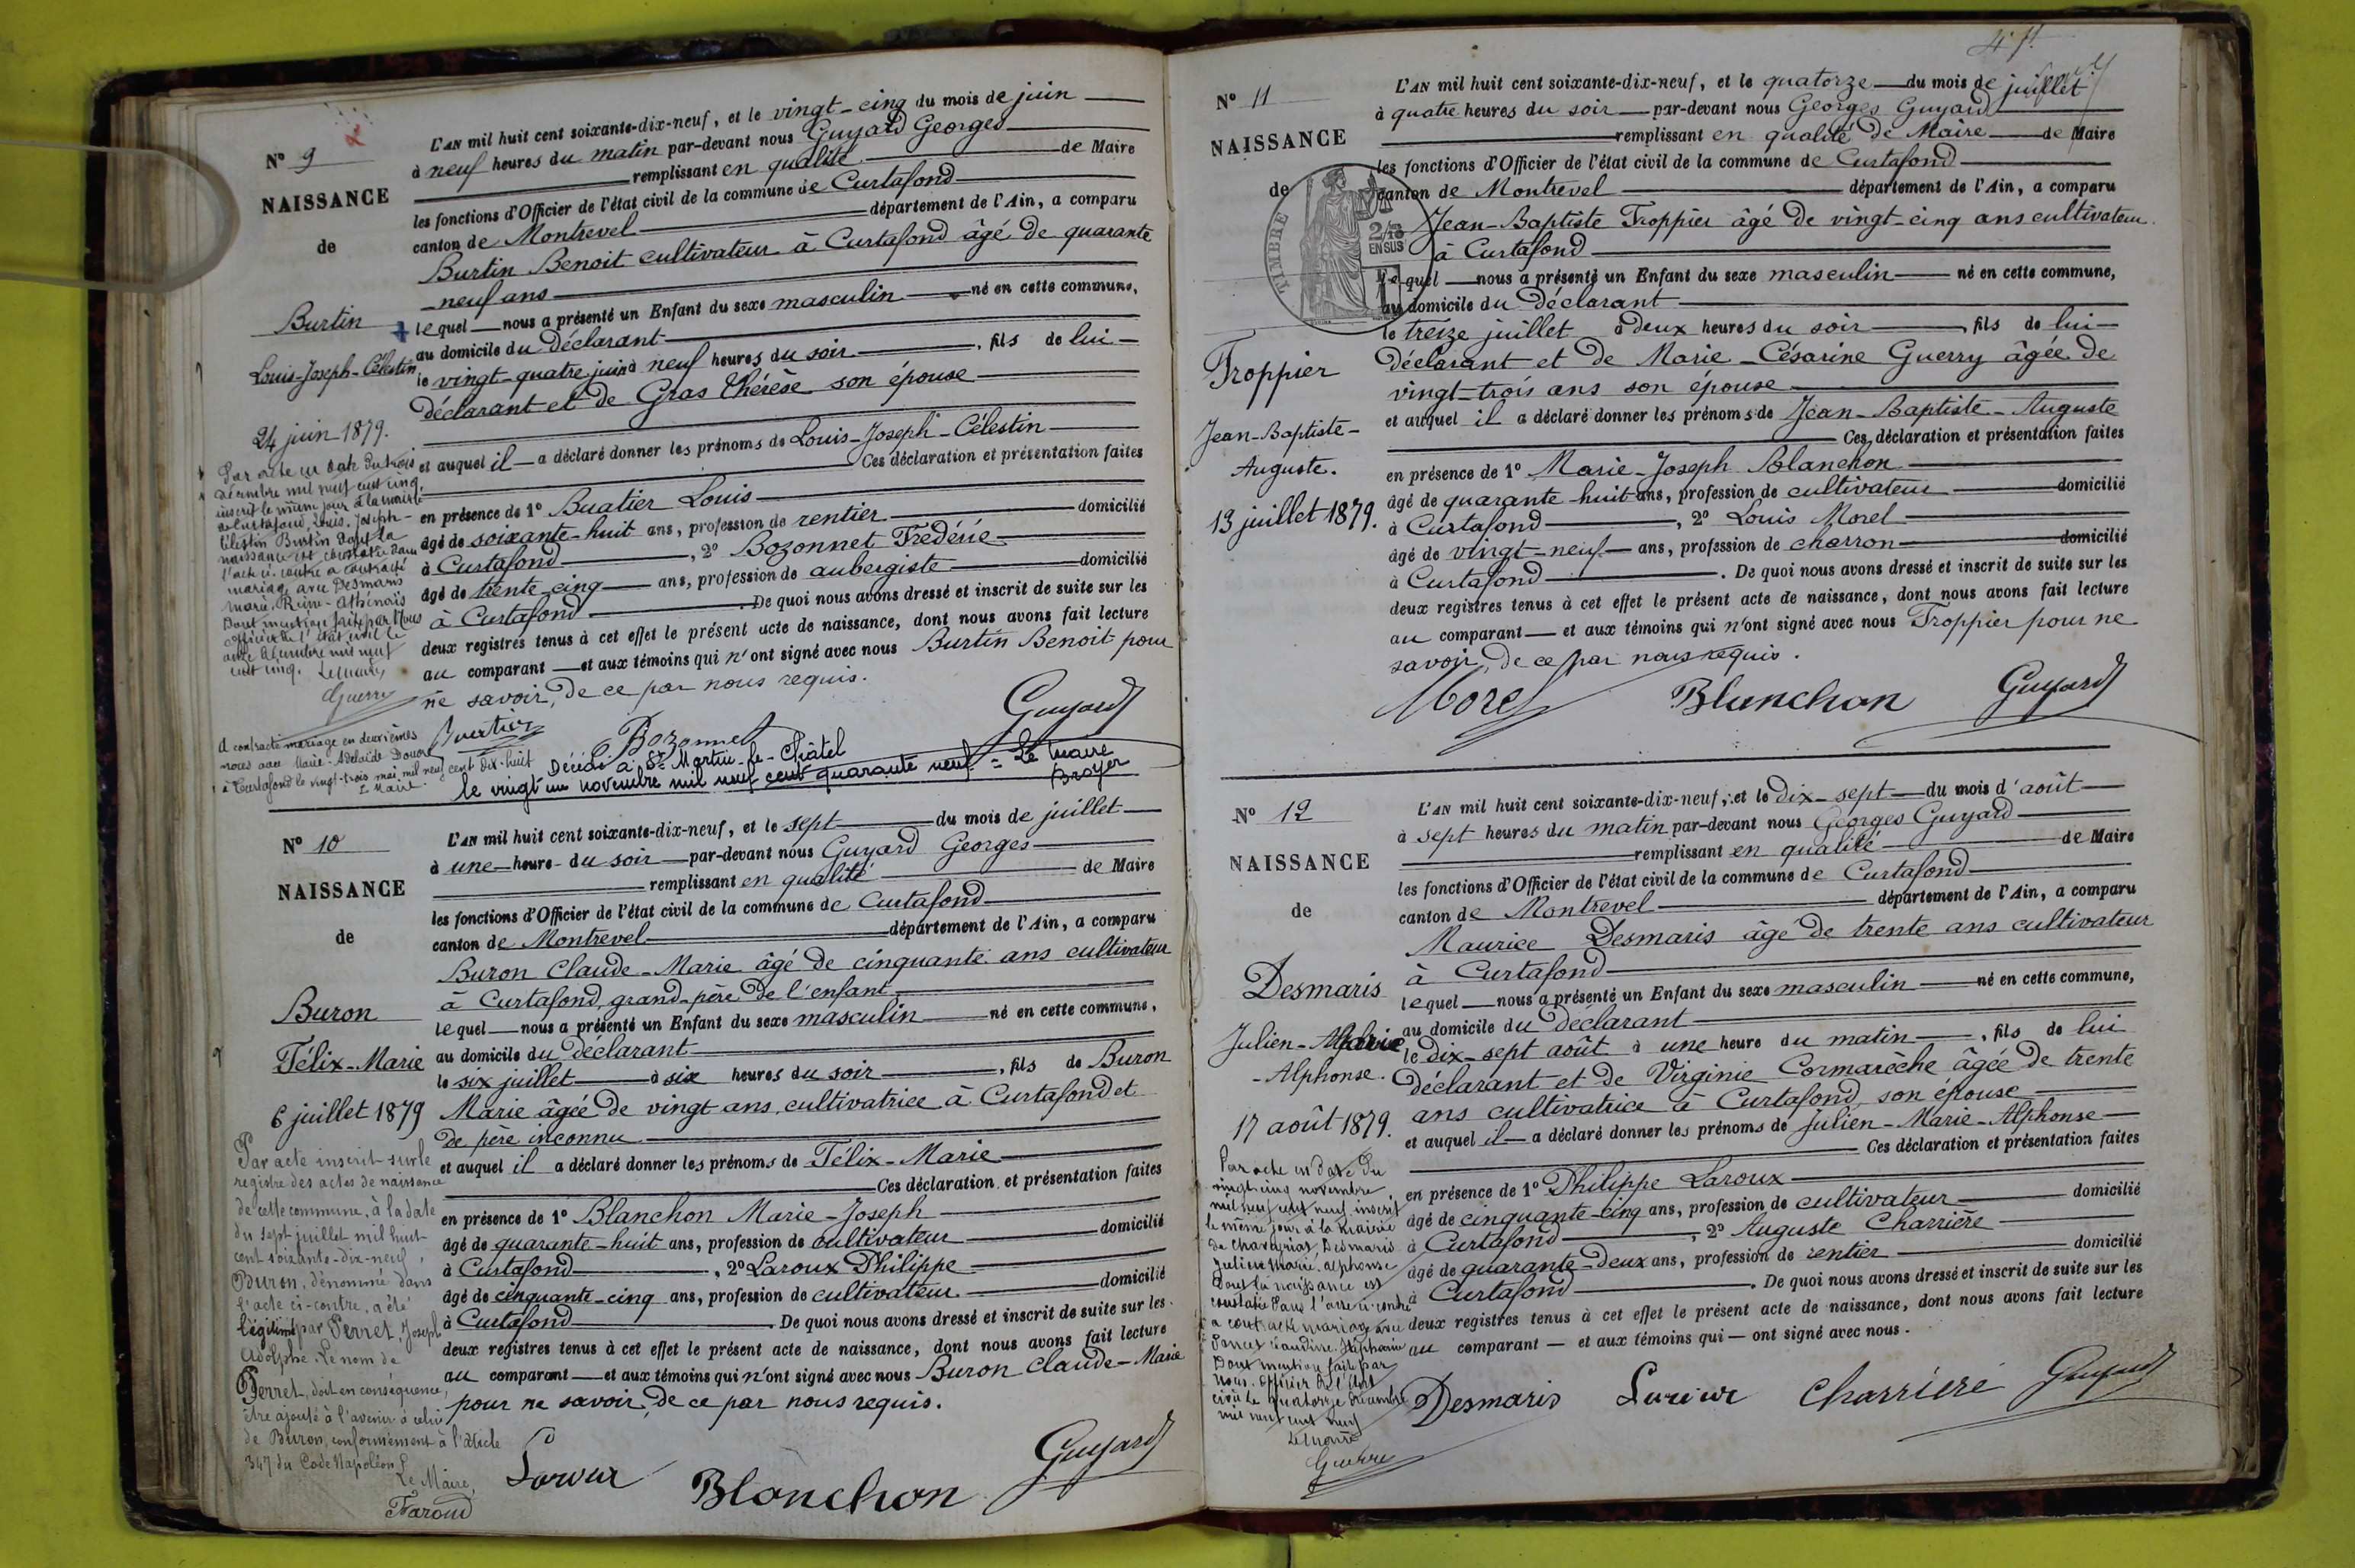 N° 9
NAISSANCE
de
Burtin
Louis-Joseph-Célestin
24 juin 1879.
Par acte en date du trois
décembre mil neuf cent cinq,
inscrit le même jour à la mairie
de Curtafond, Louis-Joseph-
Célestin Burtin dont la
naissance est constatée dans
l'acte ci-contre a contracté
mariage avec Desmaris
Marie-Reine-Athénaïs
Dont mention faite par Nous
officier de l'état civil le
décembre mil neuf
cent cinq. Le maire,
Guerry
A contracté mariage en deuxièmes
noces avec Marie-Adelaïde Douvre
à Curtafond le vingt-trois mai mil neuf cent dix-huit
L. Maire.
L'AN mil huit cent soixante-dix-neuf, et le vingt-cinq du mois de juin
à neuf heures du matin par-devant nous Guyard Georges
remplissant en qualité de Maire
les fonctions d'Officier de l'état civil de la commune de Curtafond
canton de Montrevel département de l'Ain, a comparu
Burtin Benoit cultivateur à Curtafond âgé de quarante
neuf ans
lequel nous a présenté un Enfant du sexe masculin né en cette commune,
au domicile du déclarant
le vingt-quatre juin à neuf heures du soir, fils de lui
déclarant et de Gras Thérèse son épouse
et auquel il a déclaré donner les prénoms de Louis-Joseph-Célestin
Ces déclaration et présentation faites
en présence de 1° Buatier Louis
âgé de soixante-huit ans, profession de rentier domicilié
à Curtafond, 2° Bozonnet Frédéric
âgé de trente cinq ans, profession de aubergiste domicilié
à Curtafond. De quoi nous avons dressé et inscrit de suite sur les
deux registres tenus à cet effet le présent acte de naissance, dont nous avons fait lecture
au comparant et aux témoins qui n'ont signé avec nous Burtin Benoit pour
ne savoir, de ce par nous requis.
Buatier Bozonnet Guyard
Décédé à St Martin-le-Châtel
le vingt un novembre mil neuf cent quarante neuf = Le Maire
Broyer
N° 10
NAISSANCE
de
Buron
Félix-Marie
6 juillet 1879
Par acte inscrit sur le
registre des actes de naissance
de cette commune, à la date
du sept juillet mil huit
cent soixante-dix-neuf,
Buron, dénommé dans
l'acte ci-contre, a été
légitimé par Perret, Joseph
Adolphe. Le nom de
Perret, doit en conséquence,
être ajouté à l'avenir à celui
de Buron, conformément à l'article
347 du Code Napoléon
Le Maire,
Faroud
L'AN mil huit cent soixante-dix-neuf, et le sept du mois de juillet
à une heure du soir par-devant nous Guyard Georges
remplissant en qualité de Maire
les fonctions d'Officier de l'état civil de la commune de Curtafond
canton de Montrevel département de l'Ain, a comparu
Buron Claude-Marie âgé de cinquante ans cultivateur
à Curtafond, grand-père de l'enfant
lequel nous a présenté un Enfant du sexe masculin né en cette commune,
au domicile du déclarant
le six juillet à six heures du soir, fils de Buron
Marie âgée de vingt ans, cultivatrice à Curtafond et
de père inconnu
et auquel il a déclaré donner les prénoms de Félix-Marie
Ces déclaration et présentation faites
en présence de 1° Blanchon Marie-Joseph
âgé de quarante-huit ans, profession de cultivateur domicilié
à Curtafond, 2° Laroux Philippe
âgé de cinquante-cinq ans, profession de cultivateur domicilié
à Curtafond. De quoi nous avons dressé et inscrit de suite sur les
deux registres tenus à cet effet le présent acte de naissance, dont nous avons fait lecture
au comparant et aux témoins qui n'ont signé avec nous Buron Claude-Marie
pour ne savoir, de ce par nous requis.
Laroux Blanchon Guyard
N° 11
NAISSANCE
de
TIMBRE
2/10
EN SUS
Froppier
Jean-Baptiste-
Auguste.
13 juillet 1879.
L'AN mil huit cent soixante-dix-neuf, et le quatorze du mois de juillet
à quatre heures du soir par-devant nous Georges Guyard
remplissant en qualité de Maire de Maire
les fonctions d'Officier de l'état civil de la commune de Curtafond
canton de Montrevel département de l'Ain, a comparu
Jean-Baptiste Froppier âgé de vingt-cinq ans cultivateur
à Curtafond
lequel nous a présenté un Enfant du sexe masculin né en cette commune,
au domicile du déclarant
le treize juillet à deux heures du soir, fils de lui
déclarant et de Marie-Césarine Guerry âgée de
vingt-trois ans son épouse
et auquel il a déclaré donner les prénoms de Jean-Baptiste-Auguste
Ces déclaration et présentation faites
en présence de 1° Marie-Joseph Blanchon
âgé de quarante-huit ans, profession de cultivateur domicilié
à Curtafond, 2° Louis Morel
âgé de vingt-neuf ans, profession de charron domicilié
à Curtafond. De quoi nous avons dressé et inscrit de suite sur les
deux registres tenus à cet effet le présent acte de naissance, dont nous avons fait lecture
au comparant et aux témoins qui n'ont signé avec nous Froppier pour ne
savoir, de ce par nous requis.
Morel Blanchon Guyard
N° 12
NAISSANCE
de
Desmaris
Julien-Marie
-Alphonse.
17 août 1879.
Par acte en date du
vingt cinq novembre
mil neuf cent neuf inscrit
le même jour à la Mairie
de Chaveyriat, Desmaris
Julien Marie Alphonse
dont la naissance est
constatée dans l'acte ci-contre
a contracté mariage avec
Claudine
Dont mention faite par
Nous Officier de l'état
civil le quatorze décembre
mil neuf cent neuf
Le Maire
Guerry
L'AN mil huit cent soixante-dix-neuf, et le dix-sept du mois d'août
à sept heures du matin par-devant nous Georges Guyard
remplissant en qualité de Maire
les fonctions d'Officier de l'état civil de la commune de Curtafond
canton de Montrevel département de l'Ain, a comparu
Maurice Desmaris âgé de trente ans cultivateur
à Curtafond
lequel nous a présenté un Enfant du sexe masculin né en cette commune,
au domicile du déclarant
le dix-sept août à une heure du matin, fils de lui
déclarant et de Virginie Cormarèche âgée de trente
ans cultivatrice à Curtafond, son épouse
et auquel il a déclaré donner les prénoms de Julien-Marie-Alphonse
Ces déclaration et présentation faites
en présence de 1° Philippe Laroux
âgé de cinquante-cinq ans, profession de cultivateur domicilié
à Curtafond, 2° Auguste Charrière
âgé de quarante-deux ans, profession de rentier domicilié
à Curtafond. De quoi nous avons dressé et inscrit de suite sur les
deux registres tenus à cet effet le présent acte de naissance, dont nous avons fait lecture
au comparant — et aux témoins qui — ont signé avec nous.
Desmaris Laroux Charrière Guyard